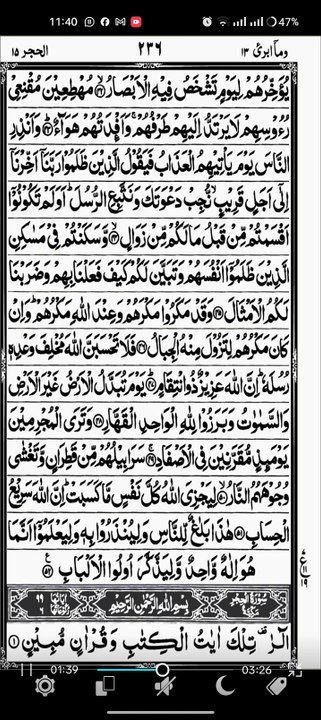 11:40
47%
الحجر ١٥
٢٣٦
وما ابرئ ١٣
يُؤَخِّرُهُمْ لِيَوْمٍ تَشْخَصُ فِيْهِ الْاَبْصَارُ ﴿٤٢﴾ مُهْطِعِيْنَ مُقْنِعِيْ
رُءُوْسِهِمْ لَا يَرْتَدُّ اِلَيْهِمْ طَرْفُهُمْ ۚ وَاَفْـِٕدَتُهُمْ هَوَآءٌ ﴿٤٣﴾ وَاَنْذِرِ
النَّاسَ يَوْمَ يَاْتِيْهِمُ الْعَذَابُ فَيَقُوْلُ الَّذِيْنَ ظَلَمُوْا رَبَّنَآ اَخِّرْنَآ
اِلٰٓى اَجَلٍ قَرِيْبٍ ۙ نُّجِبْ دَعْوَتَكَ وَنَتَّبِعِ الرُّسُلَ ؕ اَوَلَمْ تَكُوْنُوْٓا
اَقْسَمْتُمْ مِّنْ قَبْلُ مَا لَكُمْ مِّنْ زَوَالٍ ﴿٤٤﴾ وَّسَكَنْتُمْ فِيْ مَسٰكِنِ
الَّذِيْنَ ظَلَمُوْٓا اَنْفُسَهُمْ وَتَبَيَّنَ لَكُمْ كَيْفَ فَعَلْنَا بِهِمْ وَضَرَبْنَا
لَكُمُ الْاَمْثَالَ ﴿٤٥﴾ وَقَدْ مَكَرُوْا مَكْرَهُمْ وَعِنْدَ اللّٰهِ مَكْرُهُمْ ؕ وَاِنْ
كَانَ مَكْرُهُمْ لِتَزُوْلَ مِنْهُ الْجِبَالُ ﴿٤٦﴾ فَلَا تَحْسَبَنَّ اللّٰهَ مُخْلِفَ وَعْدِهٖ
رُسُلَهٗ ؕ اِنَّ اللّٰهَ عَزِيْزٌ ذُو انْتِقَامٍ ﴿٤٧﴾ يَوْمَ تُبَدَّلُ الْاَرْضُ غَيْرَ الْاَرْضِ
وَالسَّمٰوٰتُ وَبَرَزُوْا لِلّٰهِ الْوَاحِدِ الْقَهَّارِ ﴿٤٨﴾ وَتَرَى الْمُجْرِمِيْنَ
يَوْمَىِٕذٍ مُّقَرَّنِيْنَ فِي الْاَصْفَادِ ﴿٤٩﴾ سَرَابِيْلُهُمْ مِّنْ قَطِرَانٍ وَّتَغْشٰى
وُجُوْهَهُمُ النَّارُ ﴿٥٠﴾ لِيَجْزِيَ اللّٰهُ كُلَّ نَفْسٍ مَّا كَسَبَتْ ؕ اِنَّ اللّٰهَ سَرِيْعُ
الْحِسَابِ ﴿٥١﴾ هٰذَا بَلٰغٌ لِّلنَّاسِ وَلِيُنْذَرُوْا بِهٖ وَلِيَعْلَمُوْٓا اَنَّمَا
هُوَ اِلٰهٌ وَّاحِدٌ وَّلِيَذَّكَّرَ اُولُوا الْاَلْبَابِ ﴿٥٢﴾
سُوْرَةُ الْحِجْرِ مَكِّيَّةٌ
بِسْمِ اللّٰهِ الرَّحْمٰنِ الرَّحِيْمِ
اٰيَاتُهَا ٩٩ رُكُوْعَاتُهَا ٦
الٓرٰ ۫ تِلْكَ اٰيٰتُ الْكِتٰبِ وَقُرْاٰنٍ مُّبِيْنٍ ﴿١﴾
01:39
03:26